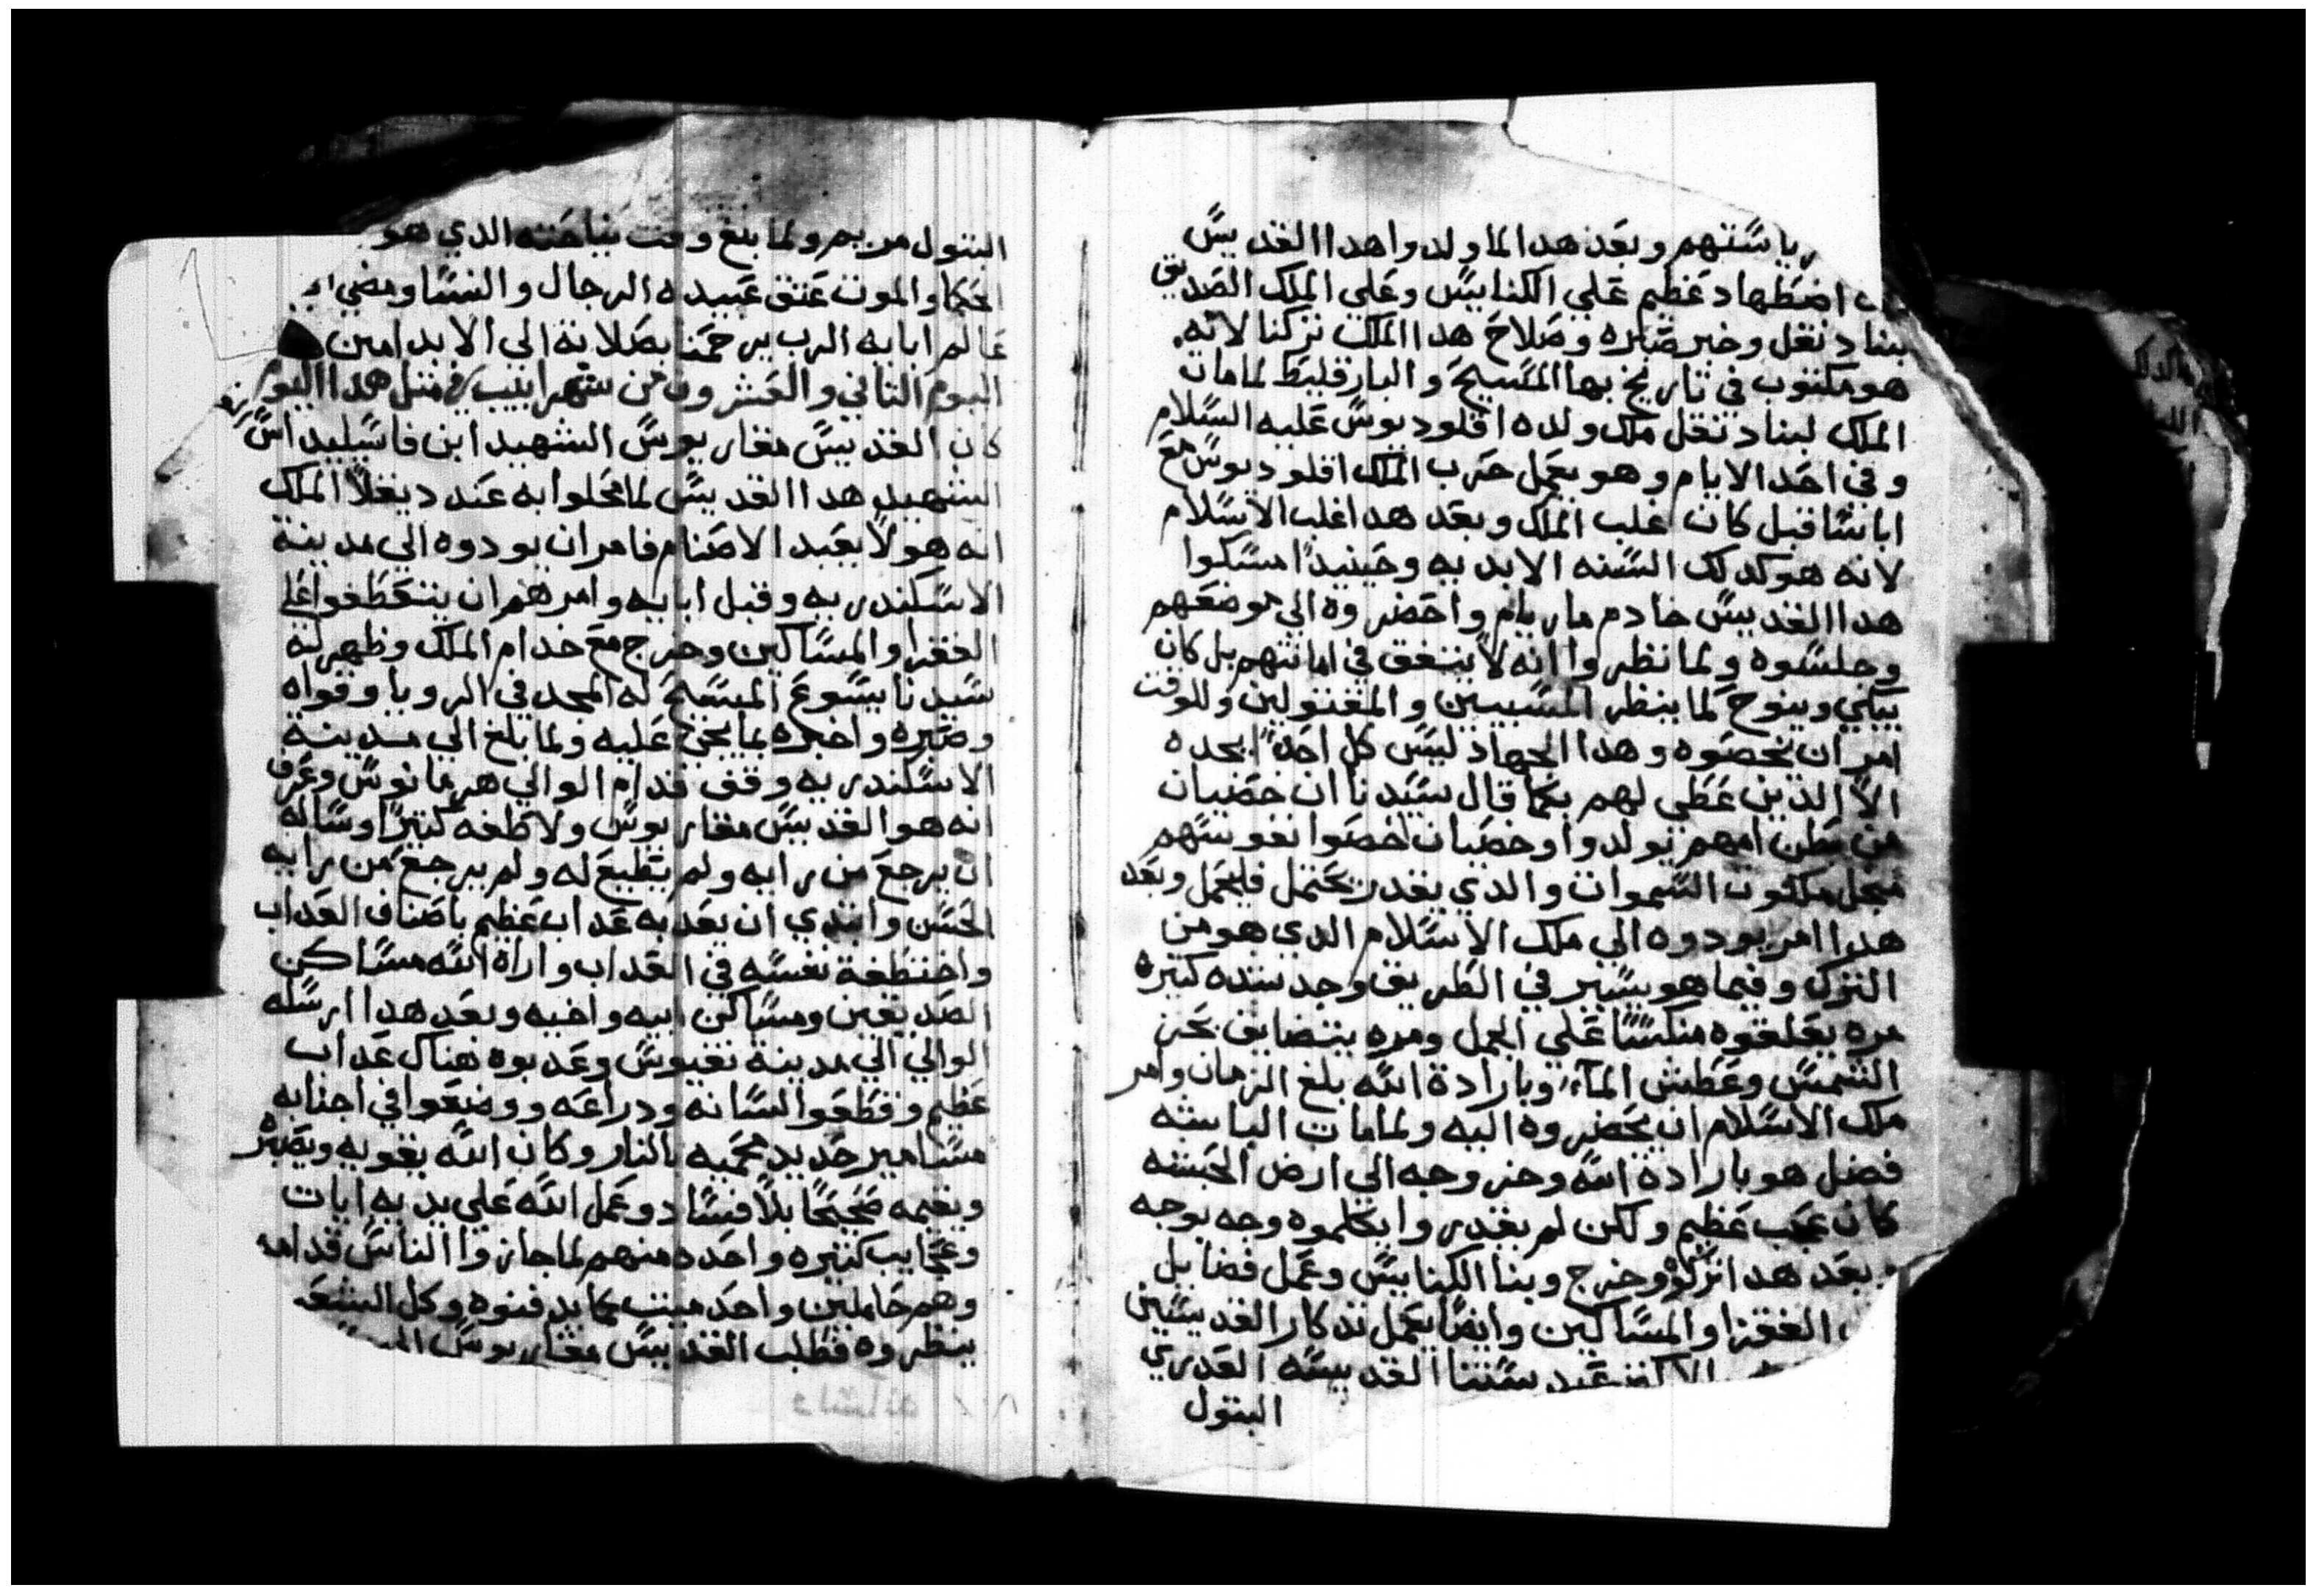 رياستهم وبعد هدا لما ولد واهدا القديس
اضطهاد عظيم علي الكنايس وعلي الملك الصديق
بنادنغل وخبر صبره وصلاح هدا الملك تركنا لانه
هو مكتوب في تاريخ بها المسيح والبارقليط لما مات
الملك لبنادنغل ملك ولده اقلوديوس عليه السلام
وفي احد الايام وهو يعمل حرب الملك اقلوديوس مع
اباسا قبل كان غلب الملك وبعد هدا غلب الاسلام
لانه هو كدلك السنه الابديه وحينيدا مسكوا
هدا القديس خادم ماريام واحضروه الي موضعهم
وجلسوه ولما نظروا انه لا يتفق في امانتهم بل كان
يبكي وينوح لما ينظر المسبيين والمقتولين وللوقت
امر ان يخصوه وهدا الجهاد ليس كل احدا يجده
الا الدين عطي لهم بكما قال سيدنا ان خصيان
من بطن امهم يولدوا وخصيان اخصوا نفوسهم
مجل ملكوت السموات والدي يقدر يحتمل فليحمل وبعد
هدا امر يودوه الي ملك الاسلام الدي هو من
الترك وفيما هو يسير في الطريق وجد شده كتيره
مره يعلقوه منكسا علي الجمل ومره يتضايق بحر
الشمس وعطش الماء وبارادة الله بلغ الزمان وامر
ملك الاسلام ان يحضروه اليه ولما مات الباشه
فضل هو بارادة الله وخروجه الي ارض الحبشه
كان عجب عظيم ولكن لم يقدروا يكلموه وجه بوجه
بعد هدا تركوه وخرج وبنا الكنايس وعمل فضايل
الفقرا والمساكين وايضا يعمل تدكار القديسين
الاكتر عيد ستنا القديسه العدري
البتول
البتول مريم ولما بلغ وقت نياحته الدي هو
الحكا والموت عتق عبيده الرجال والنسا ومضي
عالم ابايه الرب يرحمنا بصلاته الي الابد امين
اليوم التاني والعشرون من شهر ابيب في متل هدا اليوم
كان القديس مقاريوس الشهيد ابن فاسيليداس
الشهيد هدا القديس لما محلوا به عند ديقلا الملك
انه هو لا يعبد الاصنام فامر ان يودوه الي مدينة
الاسكندريه وقبل ابايه وامرهم ان يتعطفوا علي
الفقرا والمساكين وخرج مع خدام الملك وظهر له
سيدنا يسوع المسيح له المجد في الرويا وقواه
وصبره واخبره بما يجري عليه ولما بلغ الي مدينة
الاسكندريه وقف قدام الوالي هرمانوس وعرف
انه هو القديس مقاريوس ولاطفه كتيرا وساله
ان يرجع من رايه ولم يطيع له ولم يرجع من رايه
الحسن وابتدي ان يعدبه عداب عظيم باصناف العداب
واختطفة نفسه في العداب واراه الله مساكن
الصديقين ومساكن ابيه واخيه وبعد هدا ارسله
الوالي الي مدينة نقيوس وعدبوه هناك عداب
عظيم وقطعوا لسانه ودراعه ووضعوا في اجنابه
مسامير حديد محميه بالنار وكان الله يقويه ويصبره
ويقيمه صحيحا بلا فساد وعمل الله علي يديه ايات
وعجايب كتيره واحده منهم لما جازوا الناس قدامه
وهم حاملين واحد ميت لكما يدفنوه وكل الشعب
ينظروه فطلب القديس مقاريوس